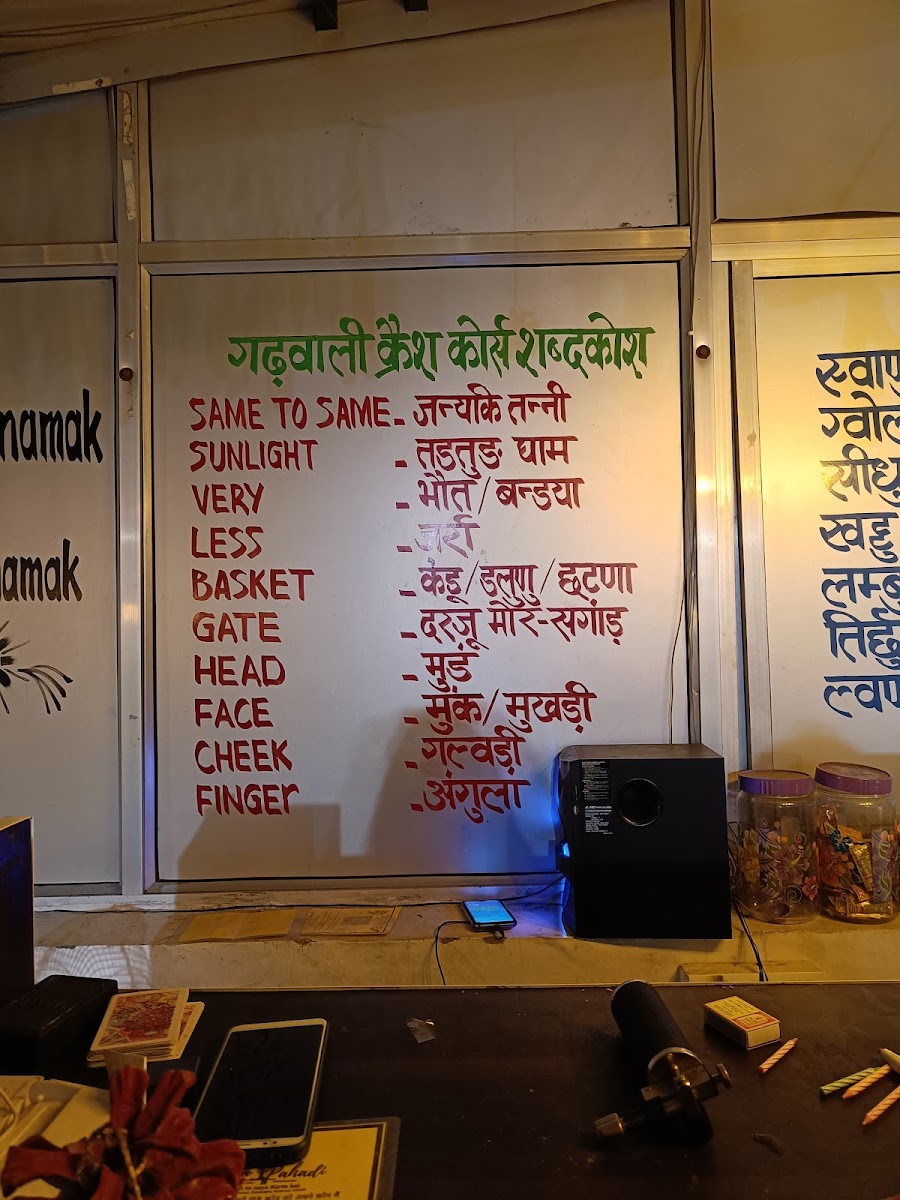 namak
namak
गढ़वाली क्रैश कोर्स शब्दकोश
SAME TO SAME - जन्यकि तन्नी
SUNLIGHT - तडतुङ घाम
VERY - भौत / बन्डया
LESS - जर्रा
BASKET - कंडू / डलुणु / छटणा
GATE - दरजू मोर-सगाड़
HEAD - मुडं
FACE - मुंक / मुखड़ी
CHEEK - गल्वड़ी
FINGEr - अंगुला
स्वाण
ग्वोल
सीधु
खड्डु
लम्ब
ल्वण
Pahadi